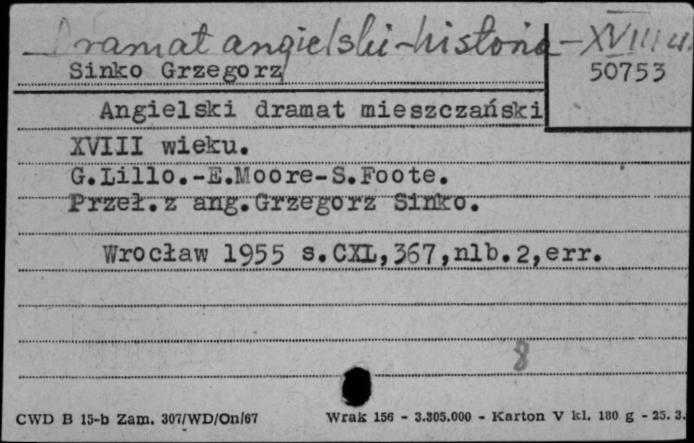 Dramat angielski-historia-XVIII w.
Sinko Grzegorz
50753
Angielski dramat mieszczański
XVIII wieku.
G.Lillo.-E.Moore-S.Foote.
Przeł.z ang.Grzegorz Sinko.
Wrocław 1955 s.CXL,367,nlb.2,err.
8
CWD B 15-b Zam. 307/WD/On/67 Wrak 156 - 3.305.000 - Karton V kl. 180 g - 25. 3.